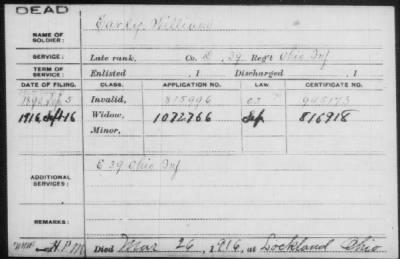 DEAD
NAME OF SOLDIER: Early, William
SERVICE: Late rank, Co. D, 39 Reg't Ohio Inf
TERM OF SERVICE: Enlisted , 1 Discharged , 1
DATE OF FILING. CLASS. APPLICATION NO. LAW. CERTIFICATE NO.
1890 Sep 5 Invalid, 815996 945173
1916 Sept 16 Widow, 1072766 Sep 816918
Minor,
ADDITIONAL SERVICES: E 39 Ohio Inf
REMARKS:
H.P.M. Died Mar 26, 1916, at Lockland Ohio